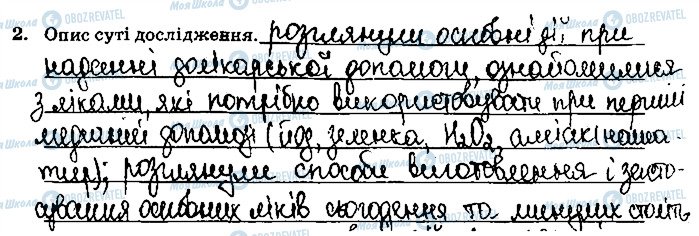 2. Опис суті дослідження. розглянули основні дії при
наданні долікарської допомоги, ознайомилися
з ліками, які потрібно використовувати при першій
медичній допомозі (йод, зеленка, H₂O₂, аміак (наша-
тир)); розглянули способи виготовлення і засто-
сування основних ліків сьогодення та минулих століть